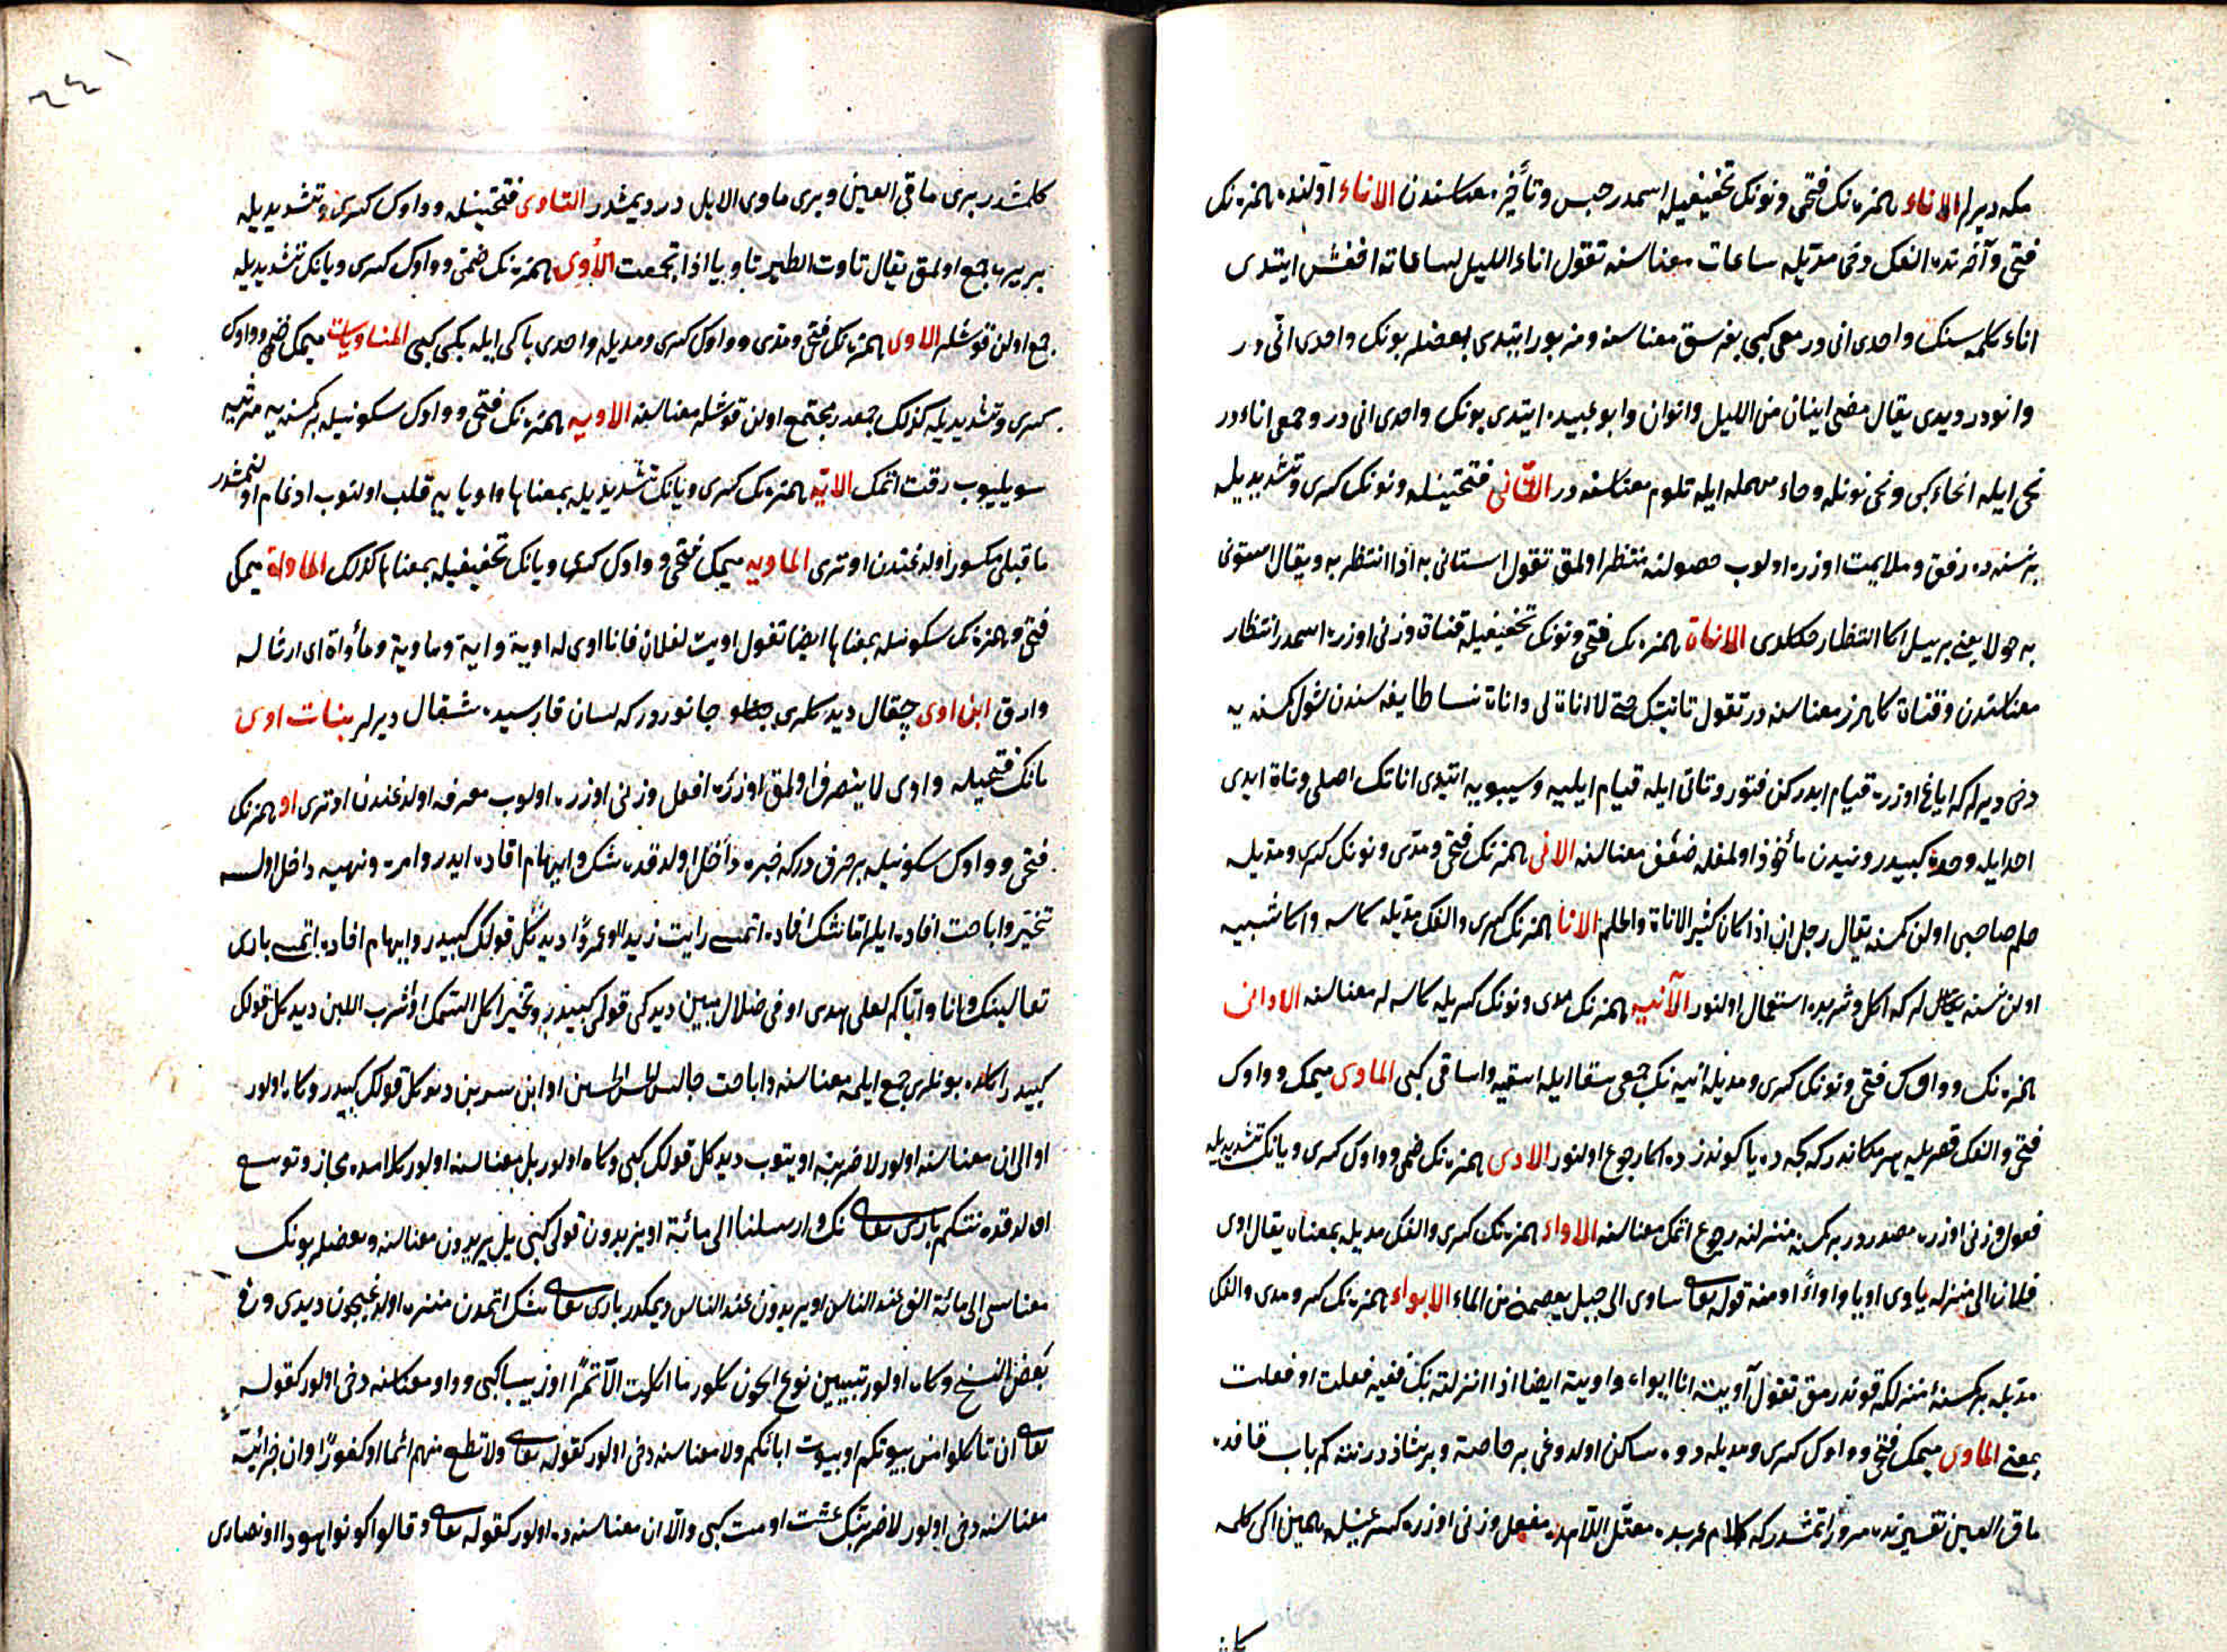 مكه ديرلر الاناء همزه نك فتحى ونونك تخفيفيله اسمدر حبس وتأخير معناسندن الاناء اولنده همزه نك
فتحى وآخرنده الفك دخى مديله ساعات معناسنه تقول اناء الليل لساعاته اخفش ايتدى
اناء كلمه سنك واحدى انى در معى كبى بغرسق معناسنه ومزبور ايتدى بعضلر بونك واحدى انى در
وانودر ديدى يقال مضى اينان من الليل وانوان وابو عبيده ايتدى بونك واحدى انى در وجمعى اناءدر
نحى ايله انحاء كبى ونحى نونله وحاء مهمله ايله تلوم معناسنه در التأنى فتحتينله ونونك كسرى وتشديديله
برنسنه ده رفق وملايمت اوزره اولوب حصولنه منتظر اولمق تقول استانى به اذا انتظر به ويقال استونى
به حولا يعنى بر ييل اكا انتظار چكلدى الاناة همزه نك فتحى ونونك تخفيفيله قناة وزنى اوزره اسمدر انتظار
معناسندن وقناة كاهرز معناسنه در تقول تانيتك حتى لا اناة لى واناة نسا طايفه سندن شول كمسنه يه
دخى ديرلر كه اياغ اوزره قيام ايدركن فتور وتانى ايله قيام ايليه وسيبويه ايتدى اناتك اصلى وناة ايدى
احد ايله وحد كبيدر ونيدن مأخوذ اولمغله ضعف معناسنه الانى همزه نك فتحى ومدى ونونك كسرى ومديله
حلم صاحبى اولن كمسنه يقال رجل ان اذا كان كثير الاناة والحلم الانا همزه نك كسرى والفك مديله كاسه واكا شبيه
اولن نسنه يه ديرلر كه اكل وشربده استعمال اولنور الآنيه همزه نك مدى ونونك كسريله كاسه لر معناسنه الاوانى
همزه نك وواوك فتحى ونونك كسرى ومديله انيه نك جمعى سقا ايله اسقيه واساقى كبى الماوى ميمك وواوك
فتحى والفك قصريله هر مكاندر كه كيجه ده يا كوندزده اكا رجوع اولنور الاوى همزه نك ضمى وواوك كسرى ويانك تشديديله
فعول وزنى اوزره مصدردر بر كمسنه منزلنه رجوع اتمك معناسنه الاواء همزه نك كسرى والفك مديله بمعناه يقال اوى
فلان الى منزله ياوى اويا واواءً ومنه قوله تعالى ساوى الى جبل يعصمنى من الماء الايواء همزه نك كسر ومدى والفك
مديله بر كمسنه ئى منزلكه قوندرمق تقول آويته انا ايواء واويته ايضا اذا انزلته بك ففيه فعلت وافعلت
بمعنى الماوى ميمك فتحى وواوك كسرى ومديله دوه ساكن اولدوغى ير خاصة وبر شاذدر نته كم باب قافده
ماق العين تفسيرنده مرور اتمشدر كه كلام عربده معتل اللامدن مفعل وزنى اوزره كسر عينله همين اكى كلمه
٢٤١
كلمشدر برى ماقى العين وبرى ماوى الابل در ديمشدر التاوى فتحتينله وواوك كسرى وتشديديله
بر يره جمع اولمق يقال تاوت الطير تاويا اذا تجمعت الأوى همزه نك ضمى وواوك كسرى ويانك تشديديله
جمع اولن قوشلر الاوى همزه نك فتحى ومدى وواوك كسرى ومديله واحدى باكى ايله بكى كبى المتاويات ميمك ضمى وواوك
كسرى وتشديديله كذلك جمعدر مجتمع اولن قوشلر معناسنه الاويه همزه نك فتحى وواوك سكونيله بر كمسنه يه مرثيه
سويليوب رقت اتمك الايّه همزه نك كسرى ويانك تشديديله بمعناها واو يا يه قلب اولنوب ادغام اولنمشدر
ماقبلى مكسور اولدغندن اوترى الماويه ميمك فتحى وواوك كسرى ويانك تخفيفيله بمعناها كذلك الماواة ميمك
فتحى وهمزه نك سكونيله بمعناها ايضا تقول اويت لفلان فانا اوى له اوية واية وماوية ومأواة اى ارثى له
وارق ابن اوى چقال ديدكلرى جانوردر كه لسان فارسيده شغال ديرلر بنات اوى
تانك فتحيله واوى لا ينصرف اولمق اوزره افعل وزنى اوزره اولوب معرفه اولدغندن اوترى او همزه نك
فتحى وواوك سكونيله بر حرف در كه خبره داخل اولدقده شك وابهام افاده ايدر وامره ونهيه داخل اولسه
تخيير واباحت افاده ايلر اما شك افاده اتمسى رايت زيدا او عمروًا ديدكل قولك كبيدر وابهام افاده اتمسى بارى
تعالينك وانا واياكم لعلى هدى او فى ضلال مبين ديدكى قولى كبيدر وتخيير كل السمك او اشرب اللبن ديدكل قولك
كبيدر اكده بونلرى جمع ايلمه معناسنه واباحت جالس الحسن او ابن سيرين ديدكل قولك كبيدر وكاه اولور
او الى ان معناسنه اولور لاضربنه او يتوب ديدكل قولك كبى وكاه اولور بل معناسنه اولور كلامده مجاز وتوسع
اولدقده نتكم بارى تعالى نك وارسلنا الى مائة او يزيدون قولى كبى بل يزيدون معناسنه وبعضلر بونك
معناسى الى مائة الف عند الناس او يزيدون عند الناس ديمكدر بارى تعالى شك اتمدن منزه اولدغيچون ديدى وفى
بعض النسخ وكاه اولور تبيين نوع ايچون كلور ما اكلت الا تمرًا او زبيبا كبى وواو معناسنه دخى اولور كقوله
تعالى ان تاكلوا من بيوتكم او بيوت ابائكم ولا معناسنه دخى اولور كقوله تعالى ولا تطع منهم اثما او كفورًا وان جزائيه
معناسنه دخى اولور لاضربنك عشت او مت كبى والا ان معناسنه ده اولور كقوله تعالى وقالوا كونوا هودا او نصارى